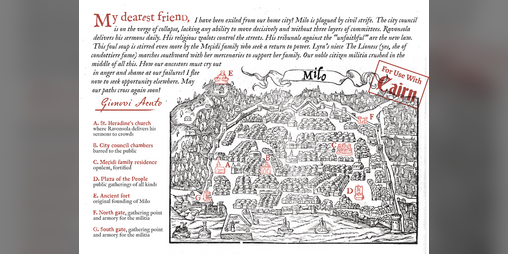 My dearest friend, I have been exiled from our home city! Milo is plagued by civil strife. The city council
is on the verge of collapse, lacking any ability to move decisively and without three layers of committees. Ravonsola
delivers his sermons daily. His religious zealots control the streets. His tribunals against the "unfaithful" are the new law.
This foul soup is stirred even more by the Meçidi family who seek a return to power. Lyra's niece The Lioness (yes, she of
condottiere fame) marches southward with her mercenaries to support her family. Our noble citizen militia crushed in the
middle of all this. How our ancestors must cry out
in anger and shame at our failures! I flee
now to seek opportunity elsewhere. May
our paths cross again soon!
Ginevri Aento
Milo
For Use With
Cairn
A. St. Heradine's church
where Ravonsola delivers his
sermons to crowds
B. City council chambers
barred to the public
C. Meçidi family residence
opulent, fortified
D. Plaza of the People
public gatherings of all kinds
E. Ancient fort
original founding of Milo
F. North gate, gathering point
and armory for the militia
G. South gate, gathering point
and armory for the militia
E
F
A
D
G